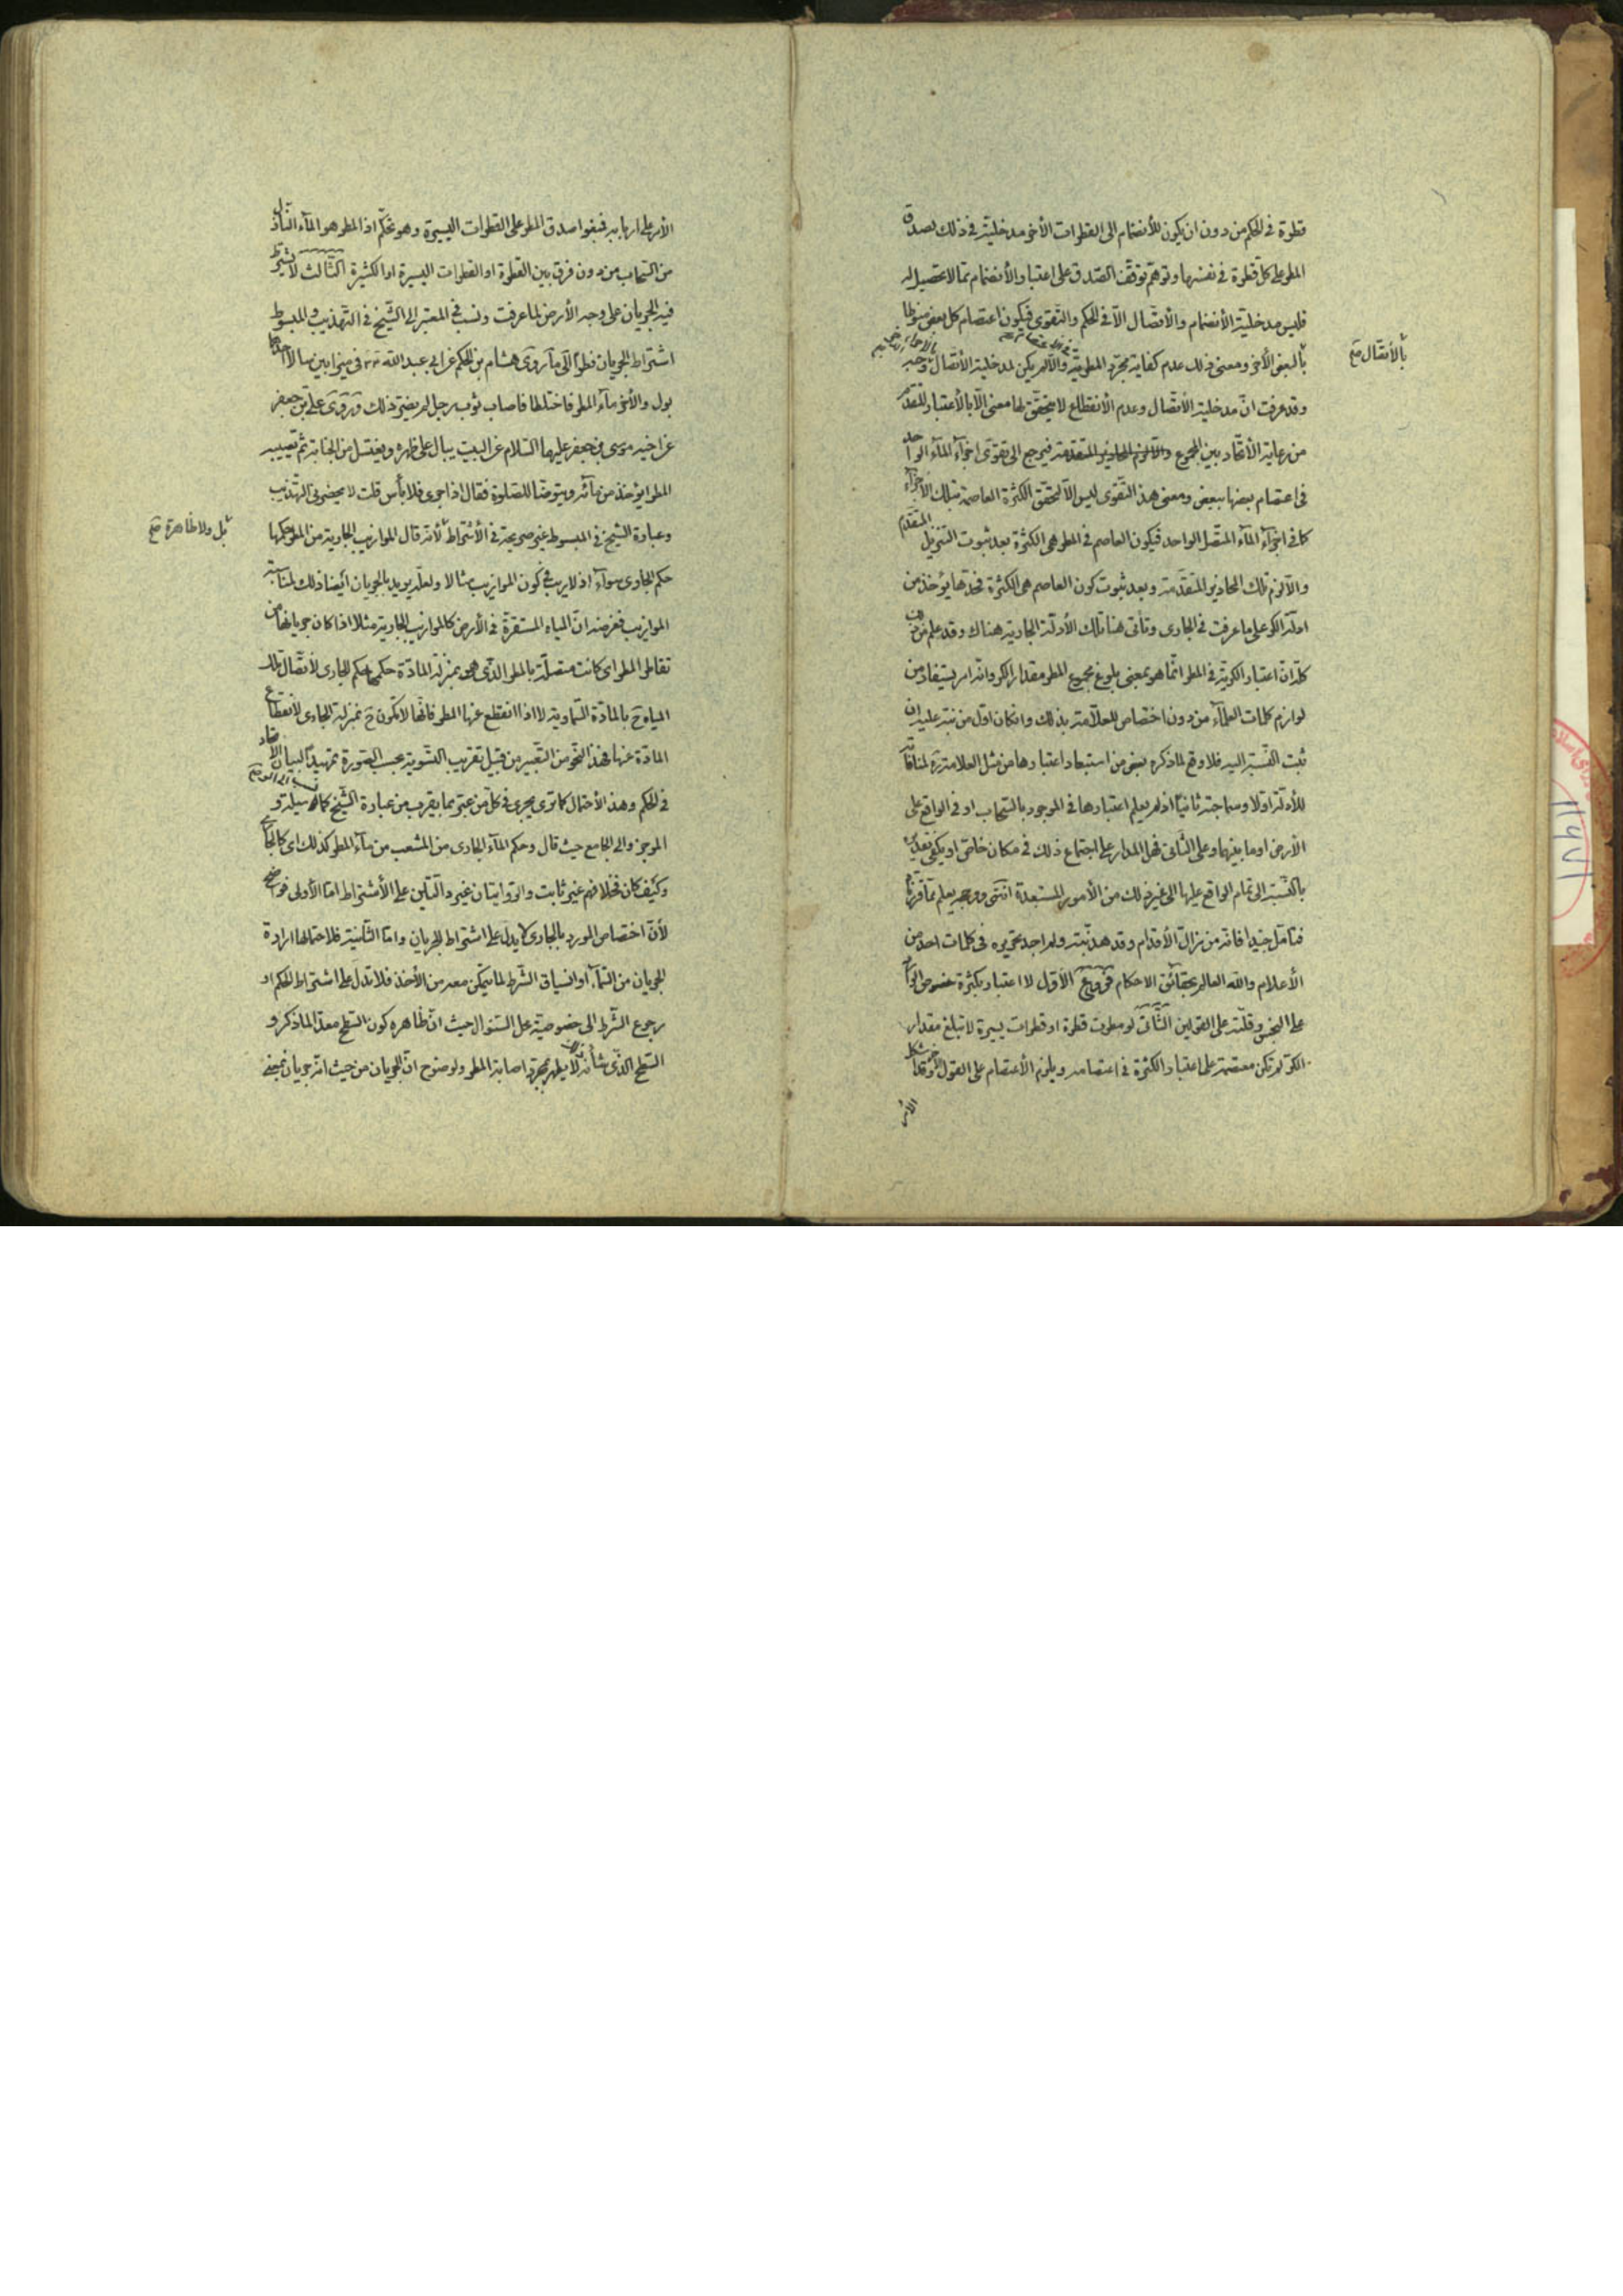 قطرة فى الحكم من دون ان يكون للأنضمام الى القطرات الأخر مدخلية فى ذلك بصدق
المطر على كل قطرة فى نفسها وتوهم توقف الصدق على اعتبار الأنضمام مما لا تحصيل له
فليس مدخلية الأنضمام والأتصال الا فى الحكم والتقوى فيكون اعتصام كل بعض منوطا
بالأتصال صح
بالبعض الأخر ومعنى ذلك عدم كفاية مجرد المطرية والا لم يكن لمدخلية الأتصال وجه
وقد عرفت ان مدخلية الأتصال وعدم الأنقطاع لا يتحقق لها معنى الا بالأعتبار المتقدم
من رعاية الأتحاد بين المجموع والا لزم المحاذير المتقدمة فيرجع الى تقوى اجزآء المآء الواحد
فى اعتصام بعضها ببعض ومعنى هذا التقوى ليس الا لتحقق الكثرة العاصمة بتلك الأجزآء
كما فى اجزآء المآء المتصل الواحد فيكون العاصم فى المطر هى الكثرة بعد ثبوت التنزيل المتقدم
والا لزم تلك المحاذير المتقدمة وبعد ثبوت كون العاصم هى الكثرة فحدها يؤخذ من
ادلة الكر على ما عرفت فى الجارى وتأتى هنا تلك الأدلة الجارية هناك وقد علم من
كله ان اعتبار الكرية فى المطر انما هو بمعنى بلوغ مجموع المطر مقدار الكر وانه امر يستفاد من
لوازم كلمات العلمآء من دون اختصاص للعلامة بذلك وانكان اول من نبه عليه ان
ثبت النسبة اليه فلا وقع لما ذكره بعض من استبعاد اعتبارها من مثل العلامة ره لمنافاته
للأدلة اولا وسماجته ثانيا اذ لم يعلم اعتبارها فى الموجود بالسحاب او فى الواقع على
الأرض او ما بينهما وعلى الثانى فهل المدار على اجتماع ذلك فى مكان خاص او يكفى تقديره
بالنسبة الى تمام الواقع عليها الى غير ذلك من الأمور المستبعدة انتهى ووجهه يعلم مما قررنا
فتأمل جيدا فانه من مزال الأقدام وقد هذبته ولم اجد تحريره فى كلمات احد من
الأعلام والله العالم بحقائق الاحكام فروع الأول لا اعتبار بكثرة خصوص الوارد
على النجس وقلته على القولين الثانى لو مطرت قطرة او قطرات يسيرة لا تبلغ مقدار
الكر لم تكن معتصمة على اعتبار الكثرة فى اعتصامه ويلزم الأعتصام على القول الأخر وقد اشكل
الأمر
الأمر على اربابه فنفوا صدق المطر على القطرات اليسيرة وهو تحكم اذ المطر هو المآء النازل
من السحاب من دون فرق بين القطرة او القطرات اليسيرة او الكثيرة الثالث لا يشترط
فيه الجريان على وجه الأرض لما عرفت ونسب فى المعتبر الى الشيخ فى التهذيب والمبسوط
اشتراط الجريان نظرا الى ما روى هشام بن الحكم عن ابى عبد الله فى ميزابين سالا احدهما
بول والأخر مآء المطر فاختلطا فاصاب ثوب رجل لم يضر ذلك وروى على بن جعفر
عن اخيه موسى بن جعفر عليهما السلام عن البيت يبال على ظهره ويغتسل من الجنابة ثم تصيبه
المطر ايؤخذ من مآئه ويتوضأ للصلوة فقال اذا جرى فلا بأس قلت لا يحضرنى التهذيب
بل ولا ظاهرة صح
وعبارة الشيخ فى المبسوط غير صريحة فى الأشتراط لأنه قال الموازيب الجارية من المطر حكمها
حكم الجارى سوآء اذ لا ريب فى كون الموازيب مثالا ولعله يريد بالجريان ايضا ذلك لمناسبة
الموازيب فغرضه ان المياه المستقرة فى الأرض كالموازيب الجارية مثلا اذا كان جريانها من
تقاطر المطر اى كانت متصلة بالمطر الذى هو بمنزلة المادة حكمها حكم الجارى لأتصال تلك
المياه ح بالمادة السماوية لا اذا انقطع عنها المطر فانها لا تكون ح بمنزلة الجارى لأنقطاع
المادة عنها فهذا النحو من التعبير من قبيل تقريب التسوية بحسب الصورة تمهيدا لبيان الأتحاد
فى الحكم وهذا الأحتمال كما ترى يجرى فى كل من عبر بما يقرب من عبارة الشيخ كما وسيلة و
الموجز والى الجامع حيث قال وحكم المآء الجارى من المشعب من مآء المطر كذلك اى كالجارى
وكيف كان فخلافهم غير ثابت والروايتان غير دالتين على الأشتراط اما الأولى فواضح
لأن اختصاص المورد بالجارى لا يدل على اشتراط الجريان واما الثانية فلاحتمالها ارادة
الجريان من السمآء او انسياق الشرط لما يتمكن معه من الأخذ فلا تدل على اشتراط الحكم او
رجوع الشرط الى خصوصية محل السئوال حيث ان ظاهره كون السطح معدا لما ذكر و
السطح الذى شأنه ذلك لا يطهر بمجرد اصابة المطر ولوضوح ان الجريان من حيث انه جريان بمعنى